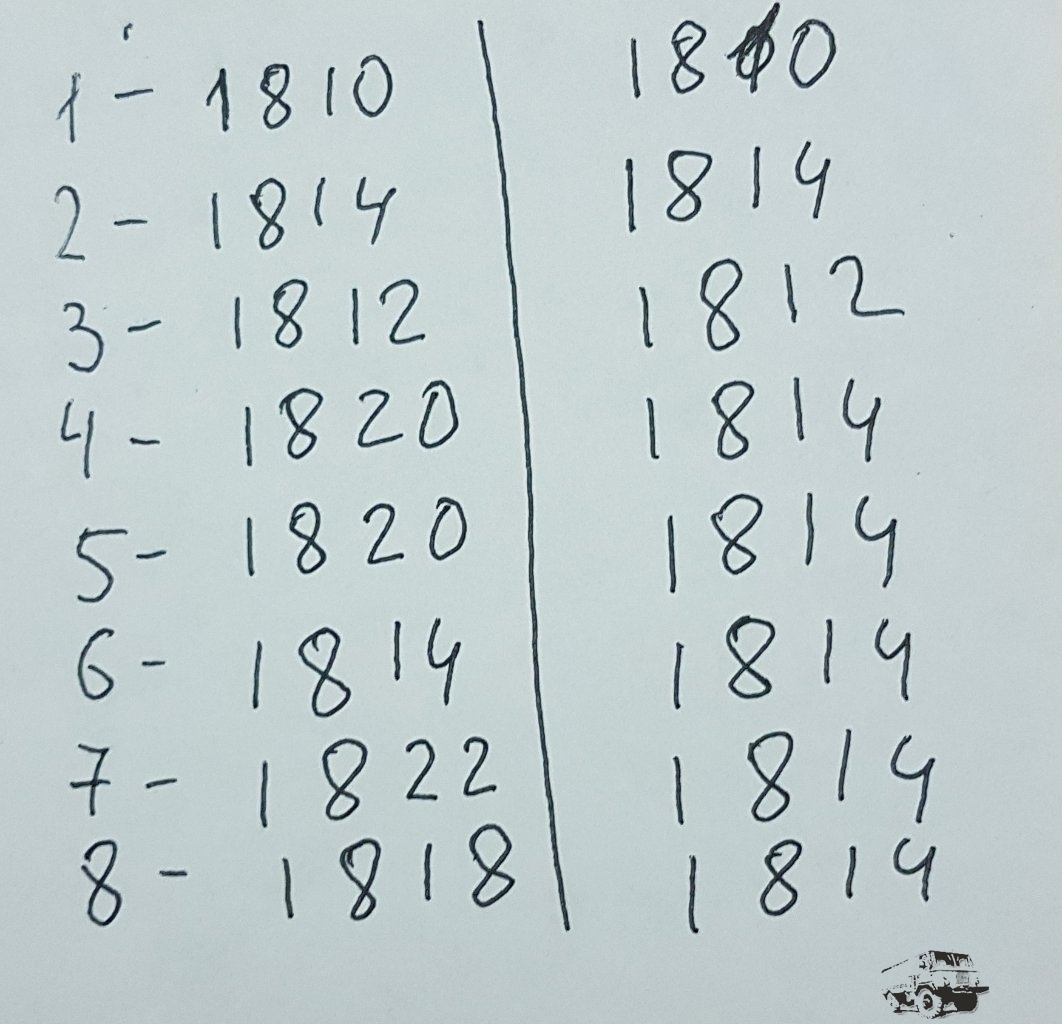 1 - 1810 | 1810
2 - 1814 | 1814
3 - 1812 | 1812
4 - 1820 | 1814
5 - 1820 | 1814
6 - 1814 | 1814
7 - 1822 | 1814
8 - 1818 | 1814